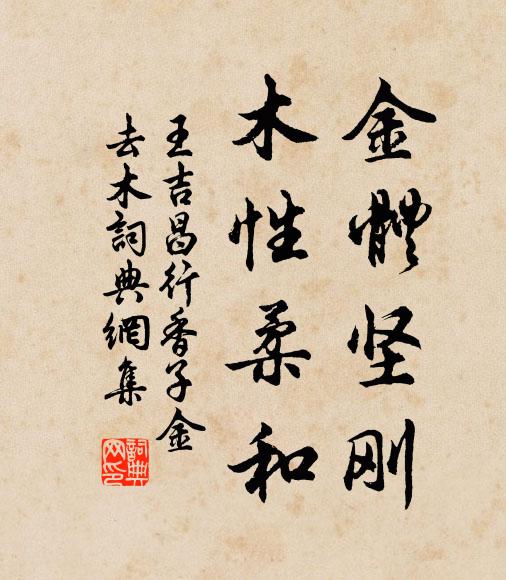 金體坚刚
木性柔和
王吉昌行香子金
去木詞典網集
詞典网印